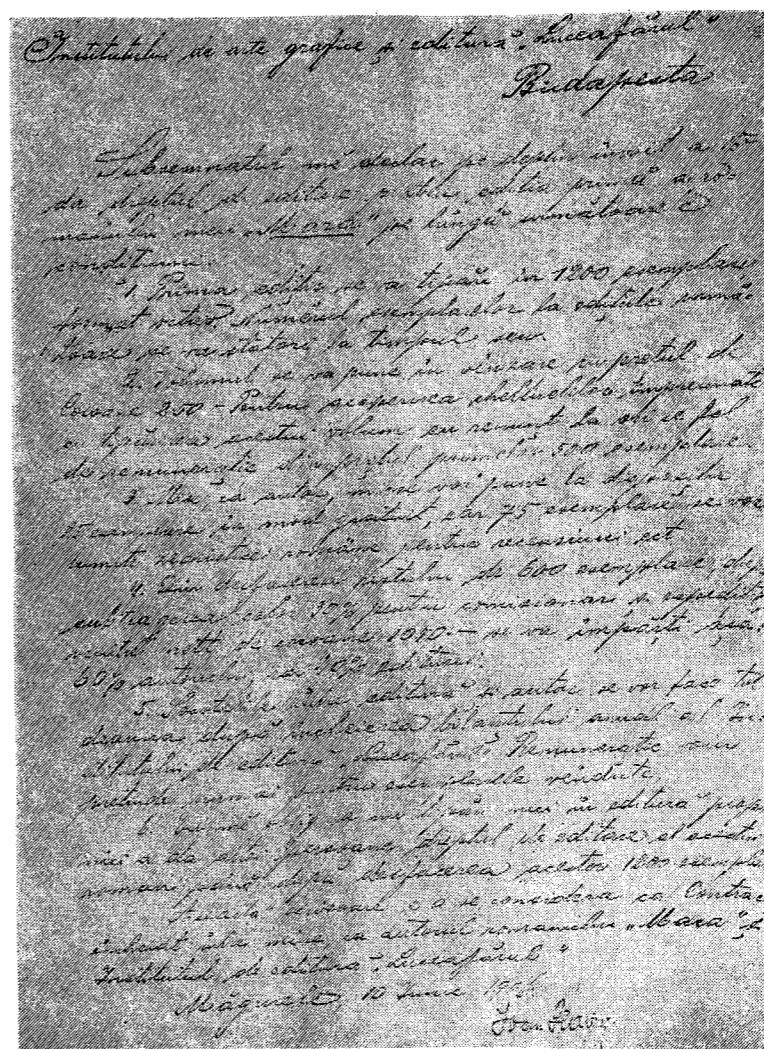 Institutului de arte grafice și editură „Luceafărul"
Budapesta
Subsemnatul mă declar pe deplin învoit a
da dreptul de editare pentru ediția primă a ro-
manului meu „Mara" pe lângă următoarele
condițiuni:
1. Prima ediție se va tipări în 1200 exemplare,
format octav. Numărul exemplarelor la edițiile urmă-
toare se va statori la timpul seu.
2. Volumul se va pune în vînzare cu prețul de
Coroane 2.50 – Pentru acoperirea cheltuelilor împreunate
cu tipărirea acestui volum eu renunț la orice fel
de remunerație din prețul primelor 500 exemplare.
3. Mie, ca autor, mi se vor pune la dispoziție
25 exemplare în mod gratuit, ear 75 exemplare se vor
trimite revistelor române pentru recensiuni ect.
4. Din desfacerea restului de 600 exemplare, după
subtragerea celor pentru comisionari și expediție
venitul nett de coroane se va împărți
50% autorului, ear 50% editurei.
5. între editură și autor se vor face tot-
deauna după încheierea bilanțului anual al In-
stitutului de editură „Luceafărul". Remunerație voiu
pretinde numai pentru exemplarele vîndute.
6. Eu mă oblig a nu tipări nici în editură prop
nici a da altei persoane dreptul de editare al acestui
roman până după desfacerea acestor 1200 exempla
Această se va considera ca Contrac
încheiat între mine ca autorul romanului „Mara" și
Institutul de editură „Luceafărul"
Măgurele, 10 Iunie
Ioan Slavici